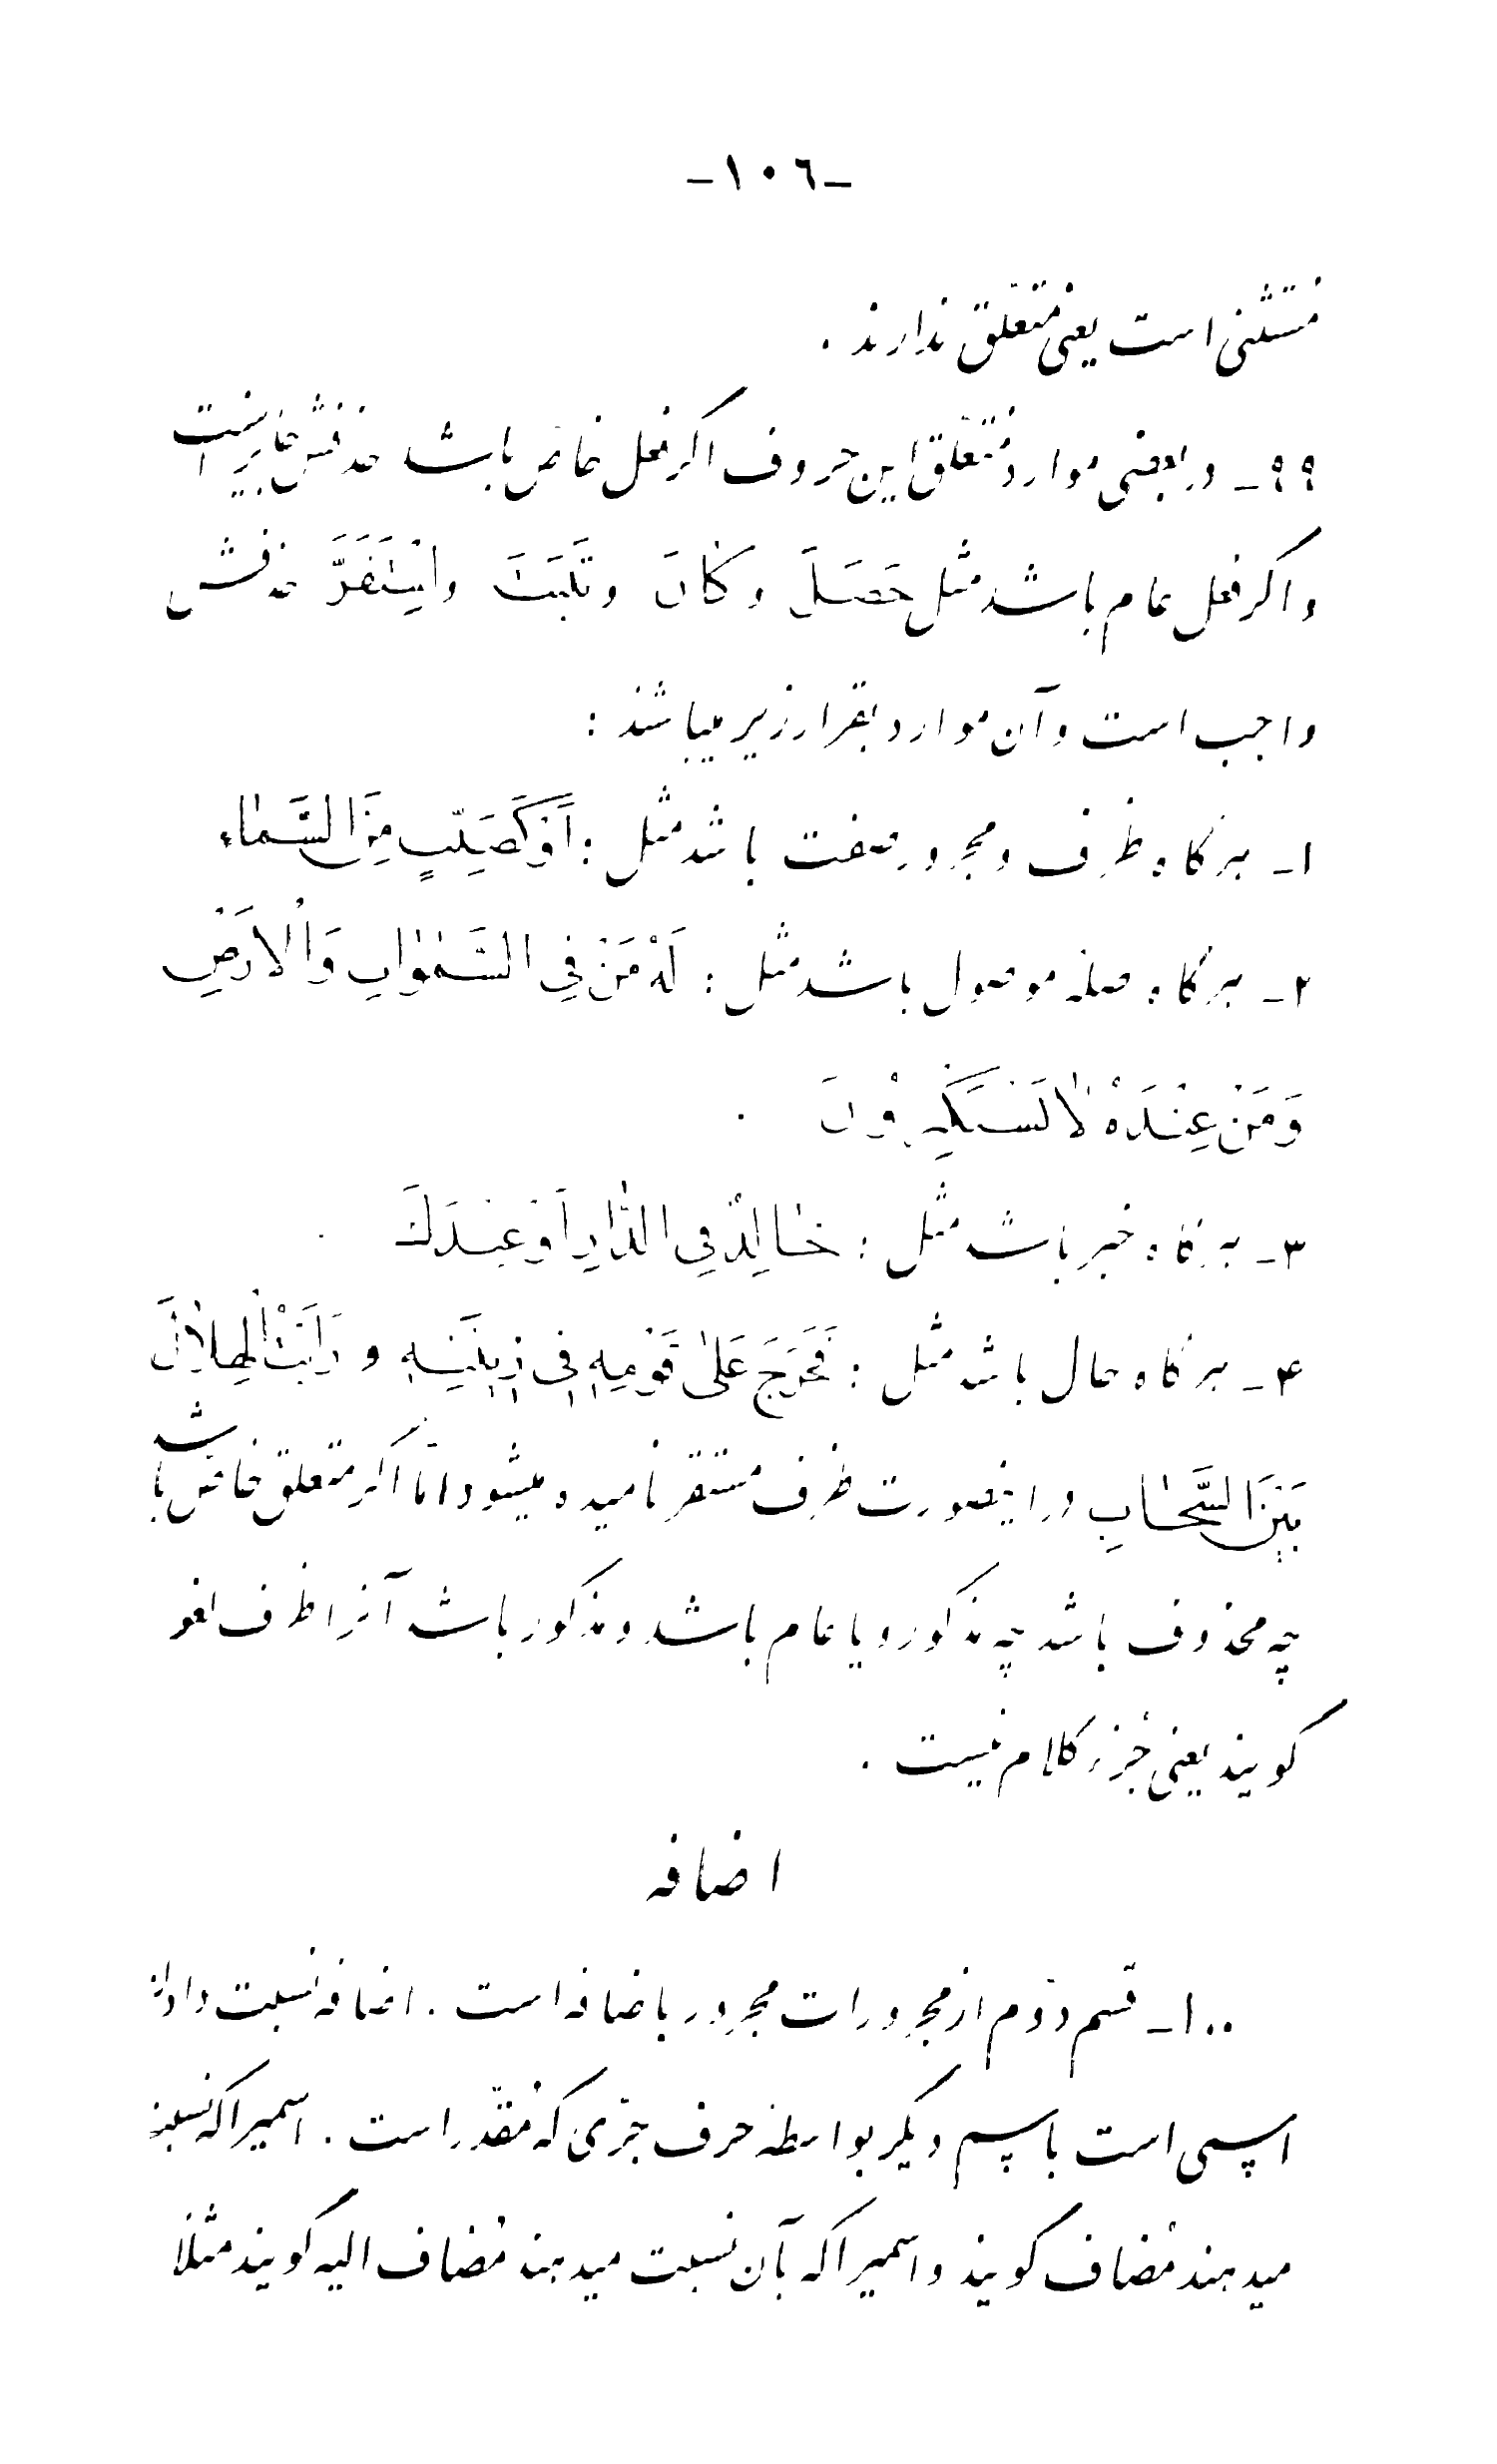 -۱۰۶-
مُستثنی است یعنی مُتعَلّق ندارند .
۹۹- در بعضی موارد مُتعَلّق این حروف اگر فعل خاص باشد حذفش جایز است
و اگر فعل عام باشد مثل حَصَلَ و کانَ و ثَبَتَ و اِسْتَقَرَّ حذفش
واجب است و آن موارد بقرار زیر میباشد :
۱- هرگاه ظرف و مجرور صفت باشد مثل : اَوْ کَصَیِّبٍ مِنَ السَّمٰاءِ
۲- هرگاه صله موصول باشد مثل : لَهُ مَنْ فِی السَّمٰوٰاتِ وَالْاَرْضِ
وَ مَنْ عِنْدَهُ لٰا یَسْتَکْبِرُونَ .
۳- هرگاه خبر باشد مثل : خٰالِدٌ فِی الدّٰارِ اَوْ عِنْدَكَ .
۴- هرگاه حال باشد مثل : فَخَرَجَ عَلیٰ قَوْمِهِ فِی زِینَتِهِ و رَاَیْتُ الْهِلٰالَ
بَیْنَ السَّحٰابِ در اینصورت ظرف مستقر نامیده میشود امّا اگر متعلق خاص باشد
چه محذوف باشد چه مذکور و یا عام باشد و مذکور باشد آنرا ظرف لغو
گویند یعنی جُزء کلام نیست .
اضافه
۱۰۰- قسم دوّم از مجرورات مجرور باضافه است . اضافه نسبت دادن
اسمی است باسم دیگر بواسطه حرف جرّی که مُقدّر است . اسمیرا که نسبت
میدهند مُضاف گویند و اسمیرا که بآن نسبت میدهند مُضاف الیه گویند مثلاً